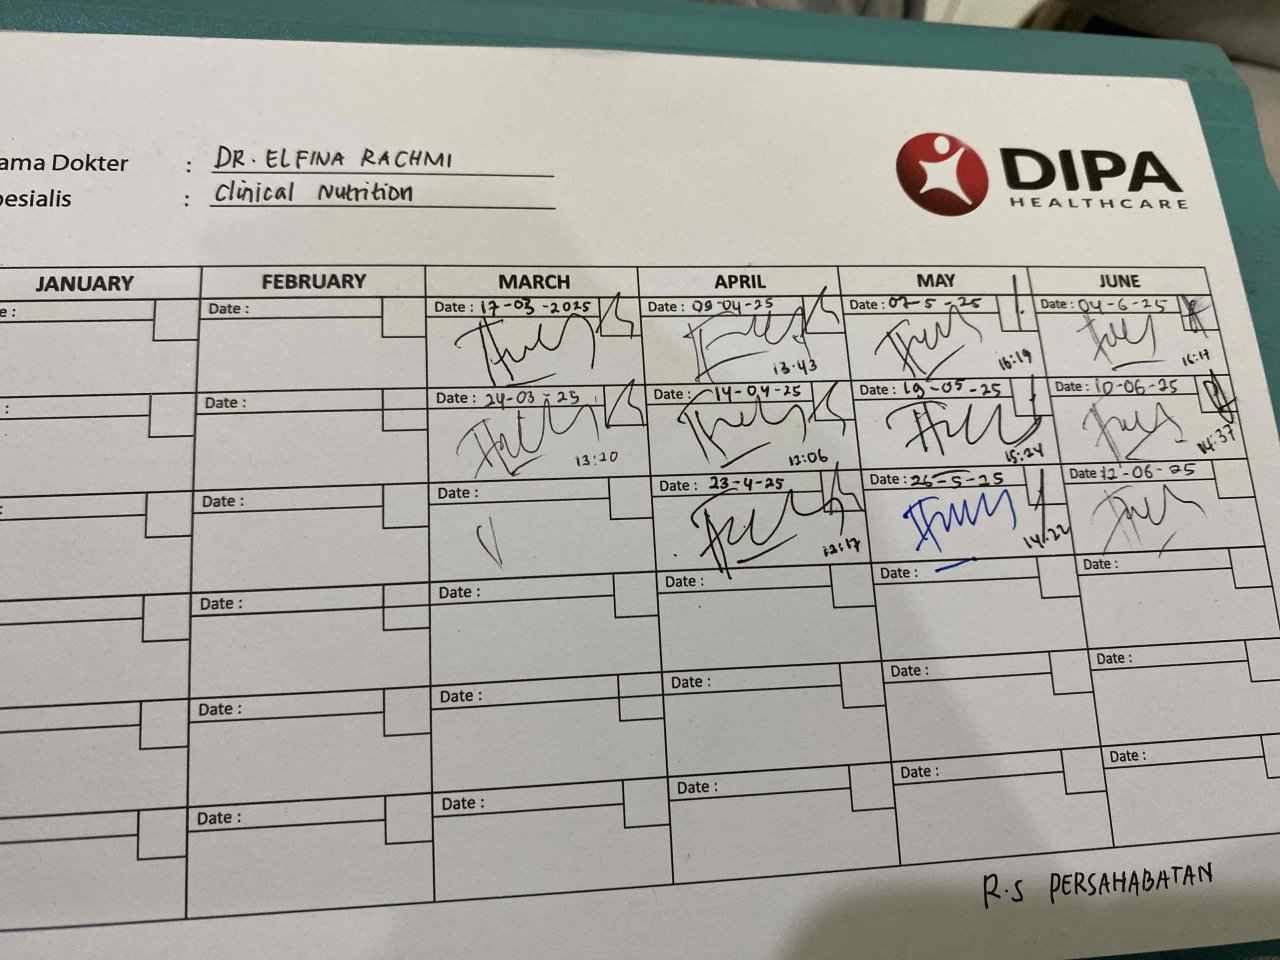 ama Dokter : DR. ELFINA RACHMI
esialis : Clinical Nutrition
DIPA
HEALTHCARE
JANUARY FEBRUARY MARCH APRIL MAY JUNE
e : Date : Date : 17-03-2025 Date : 09-04-25 Date : 07-5-25 Date : 04-6-25
13:43 16:19 16:17
: Date : Date : 24-03-25 Date : 14-04-25 Date : 19-05-25 Date : 10-06-25
13:20 12:06 15:24 14:37
: Date : Date : Date : 23-4-25 Date : 26-5-25 Date : 12-06-25
12:17 14:22
Date : Date : Date : Date : Date :
Date : Date : Date : Date : Date :
Date : Date : Date : Date : Date :
R.S PERSAHABATAN